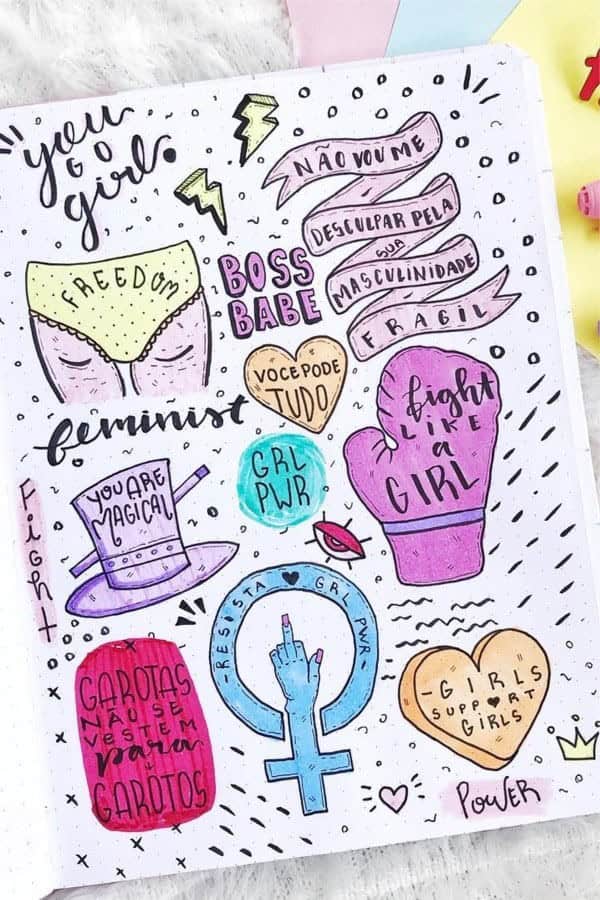 you
GO
girl.
NÃO VOU ME
DESCULPAR PELA
SUA
MASCULINIDADE
FRAGIL
FREEDOM
BOSS
BABE
VOCE PODE
TUDO
feminist
fight
LIKE
a
GIRL
GRL
PWR
YOU ARE
MAGICAL
Fight
-RESISTA ♥ GRL PWR-
GAROTAS
NÃO SE
VESTEM
para
GAROTOS
-GIRLS
SUPPORT
GIRLS
POWER